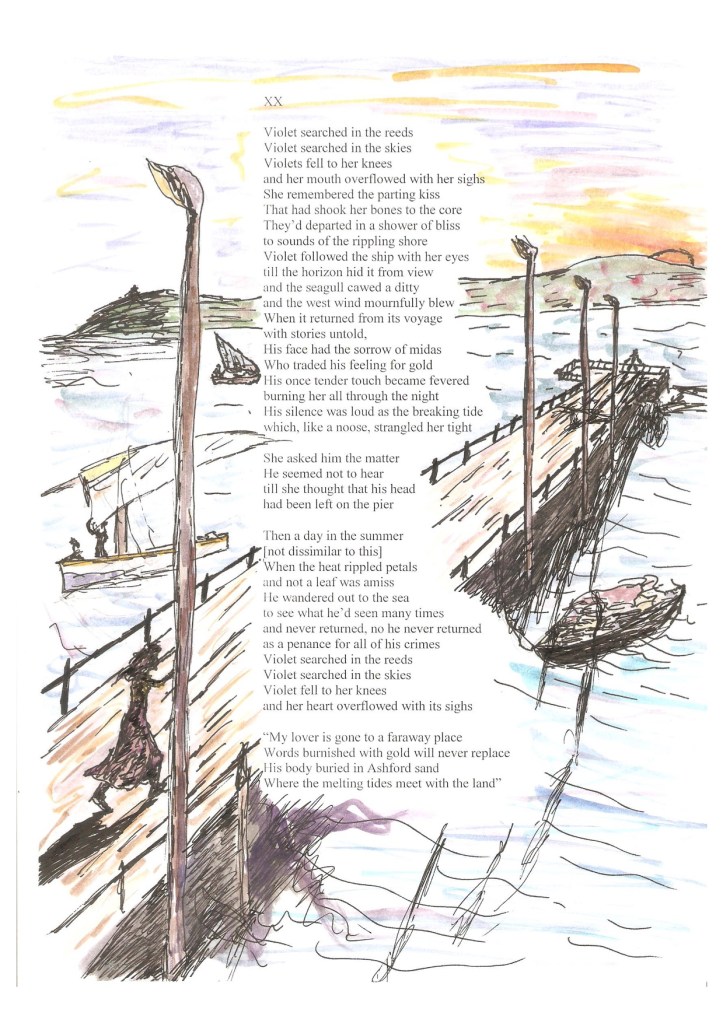 XX
Violet searched in the reeds
Violet searched in the skies
Violets fell to her knees
and her mouth overflowed with her sighs
She remembered the parting kiss
That had shook her bones to the core
They’d departed in a shower of bliss
to sounds of the rippling shore
Violet followed the ship with her eyes
till the horizon hid it from view
and the seagull cawed a ditty
and the west wind mournfully blew
When it returned from its voyage
with stories untold,
His face had the sorrow of midas
Who traded his feeling for gold
His once tender touch became fevered
burning her all through the night
His silence was loud as the breaking tide
which, like a noose, strangled her tight
She asked him the matter
He seemed not to hear
till she thought that his head
had been left on the pier
Then a day in the summer
[not dissimilar to this]
When the heat rippled petals
and not a leaf was amiss
He wandered out to the sea
to see what he’d seen many times
and never returned, no he never returned
as a penance for all of his crimes
Violet searched in the reeds
Violet searched in the skies
Violet fell to her knees
and her heart overflowed with its sighs
“My lover is gone to a faraway place
Words burnished with gold will never replace
His body buried in Ashford sand
Where the melting tides meet with the land”